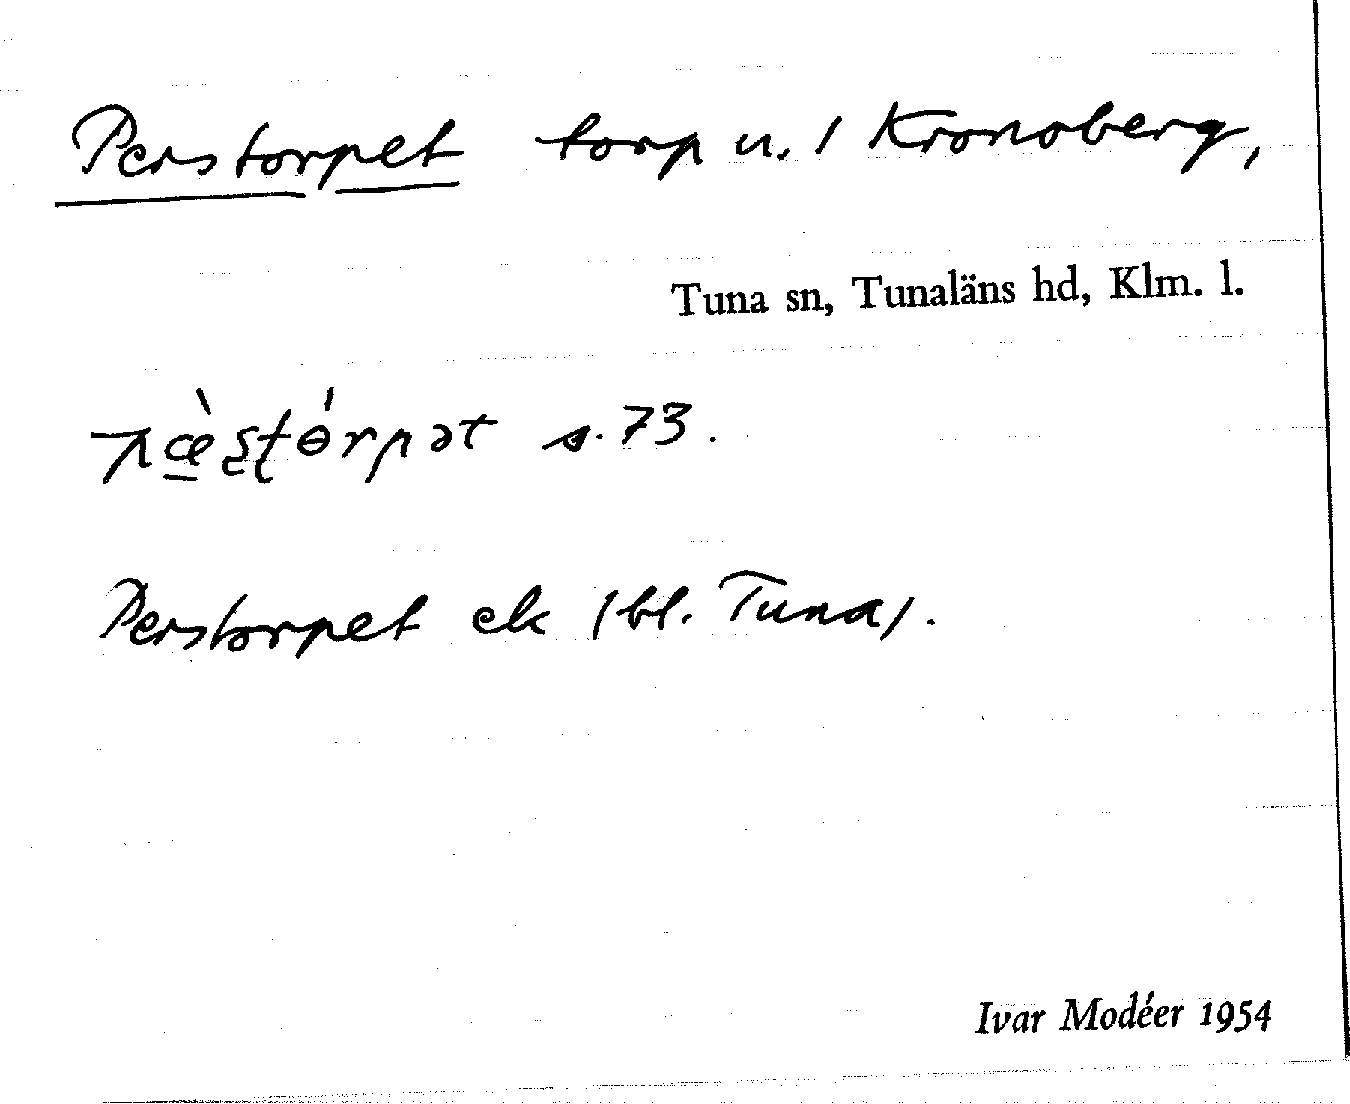 Perstorpet torp u. 1 Kronoberg,
Tuna sn, Tunaläns hd, Klm. l.
pæ̠̀ʂʈɵ́rpət s. 73.
Perstorpet ek (bl. Tuna).
Ivar Modéer 1954